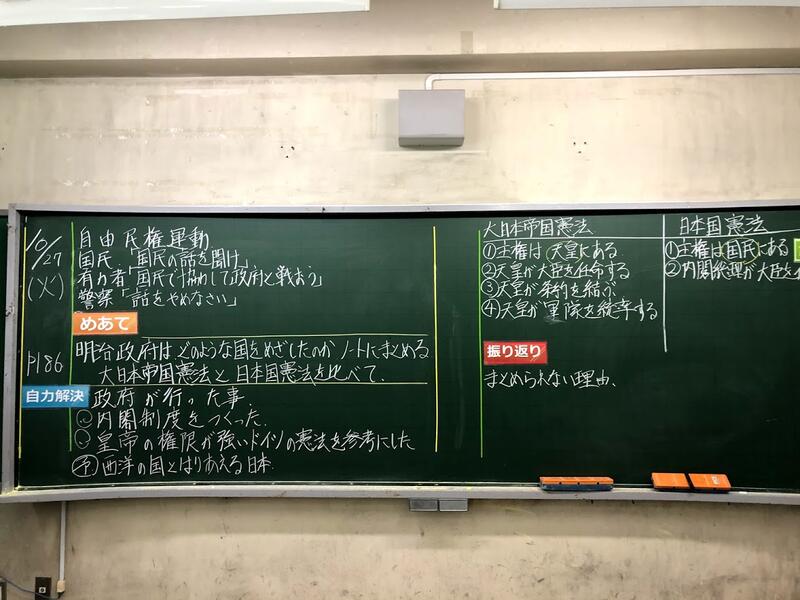 10/27
(火)
自由民権運動
国民「国民の話を聞け」
有力者「国民で協力して政府と戦おう」
警察「話をやめなさい」
めあて
P186
明治政府はどのような国をめざしたのかノートにまとめる
大日本帝国憲法と日本国憲法を比べて、
自力解決
政府が行った事、
内閣制度をつくった、
皇帝の権限が強いドイツの憲法を参考にした
予 西洋の国とはりあえる日本
大日本帝国憲法
①主権は天皇にある
②天皇が大臣を任命する
③天皇が条約を結ぶ
④天皇が軍隊を統率する
日本国憲法
①主権は国民にある
②内閣総理が大臣を
振り返り
まとめられない理由、